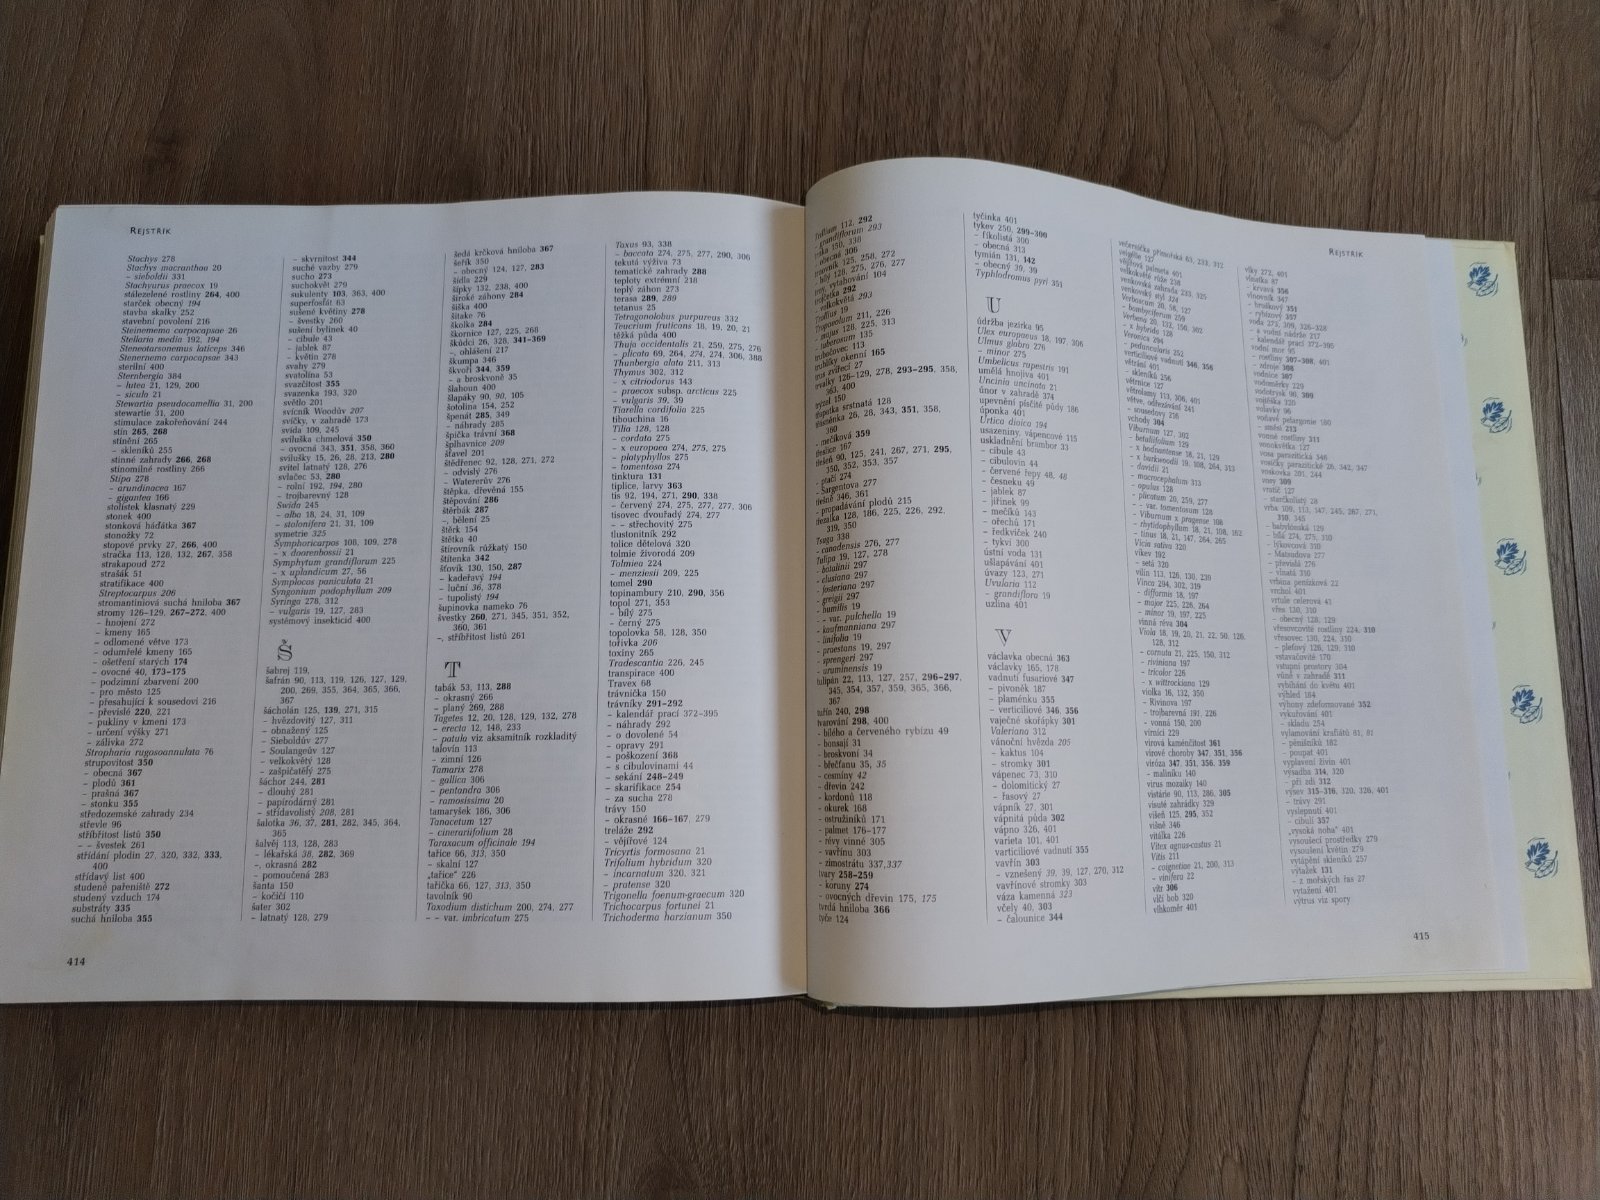 REJSTŘÍK
Stachys 278
Stachys macrantha 20
– sieboldii 331
Stachyurus praecox 19
stálezelené rostliny 264, 400
starček obecný 194
stavba skalky 252
stavební povolení 216
Steinernema carpocapsae 26
Stellaria media 192, 194
Steneotarsonemus laticeps 346
Steinernema carpocapsae 343
sterilní 400
Sternbergia 384
– lutea 21, 129, 200
– sicula 21
Stewartia pseudocamellia 31, 200
stewartie 31, 200
stimulace zakořeňování 244
stín 265, 268
stínění 265
– skleníků 255
stinné zahrady 266, 268
stínomilné rostliny 266
Stipa 278
– arundinacea 167
– gigantea 166
stolístek klasnatý 229
stonek 400
stonková háďátka 367
stonožky 72
stopové prvky 27, 266, 400
stračka 113, 128, 132, 267, 358
strakapoud 272
strašák 51
stratifikace 400
Streptocarpus 206
stromantiniová suchá hniloba 367
stromy 126–129, 267–272, 400
– hnojení 272
– kmeny 165
– odlomené větve 173
– odumřelé kmeny 165
– ošetření starých 174
– ovocné 40, 173–175
– podzimní zbarvení 200
– pro město 125
– přesahující k sousedovi 216
– převislé 220, 221
– pukliny v kmeni 173
– určení výšky 271
– zálivka 272
Stropharia rugosoannulata 76
strupovitost 350
– obecná 367
– plodů 361
– prašná 367
– stonku 355
středozemské zahrady 234
střevle 96
stříbřitost listů 350
– – švestek 261
střídání plodin 27, 320, 332, 333,
400
střídavý list 400
studené pařeniště 272
studený vzduch 174
substráty 335
suchá hniloba 355
– skvrnitost 344
suché vazby 279
sucho 273
suchokvět 279
sukulenty 103, 363, 400
superfosfát 63
sušené květiny 278
– švestky 260
sušení bylinek 40
– cibule 43
– jablek 87
– květin 278
svahy 279
svatolína 53
svazčitost 355
svazenka 193, 320
světlo 201
svícník Woodův 207
svíčky, v zahradě 173
svída 109, 245
sviluška chmelová 350
– ovocná 343, 351, 358, 360
svilušky 15, 26, 28, 213, 280
svitel latnatý 128, 276
svlačec 53, 280
– rolní 192, 194, 280
– trojbarevný 128
Swida 245
– alba 18, 24, 31, 109
– stolonifera 21, 31, 109
symetrie 325
Symphoricarpos 108, 109, 278
– x doorenbosii 21
Symphytum grandiflorum 225
– x uplandicum 27, 56
Symplocos paniculata 21
Syngonium podophyllum 209
Syringa 278, 312
– vulgaris 19, 127, 283
systémový insekticid 400
Š
šabrej 119,
šafrán 90, 113, 119, 126, 127, 129,
200, 269, 355, 364, 365, 366,
367
šácholán 125, 139, 271, 315
– hvězdovitý 127, 311
– obnažený 125
– Sieboldův 277
– Soulangeův 127
– velkokvětý 128
– zašpičatělý 275
šáchor 244, 281
– dlouhý 281
– papírodárný 281
– střídavolistý 208, 281
šalotka 36, 37, 281, 282, 345, 364,
365
šalvěj 113, 128, 283
– lékařská 38, 282, 369
–, okrasná 282
– pomoučená 283
šanta 150
– kočičí 110
šater 302
– latnatý 128, 279
šedá krčková hniloba 367
šeřík 350
– obecný 124, 127, 283
šídla 229
šípky 132, 238, 400
široké záhony 284
šiška 400
šitake 76
školka 284
škornice 127, 225, 268
škůdci 26, 328, 341–369
–, ohlášení 217
škumpa 346
škvoři 344, 359
– a broskvoně 35
šlahoun 400
šlapáky 90, 90, 105
šotolina 154, 252
špenát 285, 349
– náhrady 285
špička trávní 368
šplhavnice 209
šťavel 201
štědřenec 92, 128, 271, 272
– odvislý 276
– Watererův 276
štěpka, dřevěná 155
štěpování 286
štěrbák 287
–, bělení 25
štěrk 154
štětka 40
štírovník růžkatý 150
štítenka 342
šťovík 130, 150, 287
– kadeřavý 194
– luční 36, 378
– tupolistý 194
šupinovka nameko 76
švestky 260, 271, 345, 351, 352,
360, 361
–, stříbřitost listů 261
T
tabák 53, 113, 288
– okrasný 266
– planý 269, 288
Tagetes 12, 20, 128, 129, 132, 278
– erecta 12, 148, 233
– patula viz aksamitník rozkladitý
talovín 113
– zimní 126
Tamarix 278
– gallica 306
– pentandra 306
– ramosissima 20
tamaryšek 186, 306
Tanacetum 127
– cinerariifolium 28
Taraxacum officinale 194
tařice 66, 313, 350
– skalní 127
„tařice" 226
tařička 66, 127, 313, 350
tavolník 90
Taxodium distichum 200, 274, 277
– – var. imbricatum 275
Taxus 93, 338
– baccata 274, 275, 277, 290, 306
tekutá výživa 73
tematické zahrady 288
teploty extrémní 218
teplý záhon 273
terasa 289, 289
tetanus 25
Tetragonolobus purpureus 332
Teucrium fruticans 18, 19, 20, 21
těžká půda 400
Thuja occidentalis 21, 259, 275, 276
– plicata 69, 264, 274, 274, 306, 388
Thunbergia alata 211, 313
Thymus 302, 312
– x citriodorus 143
– praecox subsp. arcticus 225
– vulgaris 39, 39
Tiarella cordifolia 225
tibouchina 16
Tilia 128, 128
– cordata 275
– x europaea 274, 275, 275
– platyphyllos 275
– tomentosa 274
tinktura 131
tiplice, larvy 363
tis 92, 194, 271, 290, 338
– červený 274, 275, 277, 277, 306
tisovec dvouřadý 274, 277
– – střechovitý 275
tlustonitník 292
tolice dětelová 320
tolmie živorodá 209
Tolmiea 224
– menziesii 209, 225
tomel 290
topinambury 210, 290, 356
topol 271, 353
– bílý 275
– černý 275
topolovka 58, 128, 350
tořivka 206
toxiny 265
Tradescantia 226, 245
transpirace 400
Travex 68
trávnička 150
trávníky 291–292
– kalendář prací 372–395
– náhrady 292
– o dovolené 54
– opravy 291
– poškození 368
– s cibulovinami 44
– sekání 248–249
– skarifikace 254
– za sucha 278
trávy 150
– okrasné 166–167, 279
treláže 292
– vějířové 124
Tricyrtis formosana 21
Trifolium hybridum 320
– incarnatum 320, 321
– pratense 320
Trigonella foenum-graecum 320
Trichocarpus fortunei 21
Trichoderma harzianum 350
414
REJSTŘÍK
Trillium 112, 292
– grandiflorum 293
– obecná 306
– bílý 128, 275, 276, 277
– velkokvětá 293
Trollius 19
Tropaeolum 211, 226
– majus 128, 225, 313
– tuberosum 135
trubačovec 113
truhlíky okenní 165
trus zvířecí 27
trvalky 126–129, 278, 293–295, 358,
363, 400
tryzel 150
třapatka srstnatá 128
třásněnka 26, 28, 343, 351, 358,
360
– mečíková 359
třeslice 167
třešeň 90, 125, 241, 267, 271, 295,
350, 352, 353, 357
– ptačí 274
– Sargentova 277
třešně 346, 361
– propadávání plodů 215
třezalka 128, 186, 225, 226, 292,
319, 350
Tsuga 338
– canadensis 276, 277
Tulipa 19, 127, 278
– batalinii 297
– clusiana 297
– fosteriana 297
– greigii 297
– humilis 19
– – var. pulchella 19
– kaufmanniana 297
– linifolia 19
– praestans 19, 297
– sprengeri 297
– urumiensis 19
tulipán 22, 113, 127, 257, 296–297,
345, 354, 357, 359, 365, 366,
367
tuřín 240, 298
tvarování 298, 400
– bílého a červeného rybízu 49
– bonsají 31
– broskvoní 34
– břečťanu 35, 35
– cesmíny 42
– dřevin 242
– kordonů 118
– okurek 168
– ostružiníků 171
– palmet 176–177
– révy vinné 305
– vavřínu 303
– zimostrázu 337,337
tvary 258–259
– koruny 274
– ovocných dřevin 175, 175
tvrdá hniloba 366
tyče 124
tyčinka 401
tykev 250, 299–300
– fíkolistá 300
– obecná 313
tymián 131, 142
– obecný 39, 39
Typhlodromus pyri 351
U
údržba jezírka 95
Ulex europaeus 18, 197, 306
Ulmus glabra 276
– minor 275
Umbelicus rupestris 191
umělá hnojiva 401
Uncinia uncinata 21
únor v zahradě 374
upevnění písčité půdy 186
úponka 401
Urtica dioica 194
usazeniny, vápencové 115
uskladnění brambor 33
– cibule 43
– cibulovin 44
– červené řepy 48, 48
– česneku 49
– jablek 87
– jiřinek 99
– mečíků 143
– ořechů 171
– ředkviček 240
– tykví 300
ústní voda 131
ušlapávání 401
úvazy 123, 271
Uvularia 112
– grandiflora 19
uzlina 401
V
václavka obecná 363
václavky 165, 178
vadnutí fusariové 347
– pivoněk 187
– plaménku 355
– verticiliové 346, 356
vaječné skořápky 301
Valeriana 312
vánoční hvězda 205
– kaktus 104
– stromky 301
vápenec 73, 310
– dolomitický 27
– řasový 27
vápník 27, 301
vápnitá půda 302
vápno 326, 401
varieta 101, 401
varticiliové vadnutí 355
vavřín 303
– vznešený 39, 39, 127, 270, 312
vavřínové stromky 303
váza kamenná 323
včely 40, 303
– čalounice 344
večernička přímořská 63, 233, 312
veigelie 127
vějířová palmeta 401
velkokvěté růže 238
venkovská zahrada 233, 325
venkovský styl 324
Verbascum 20, 58, 127
– bombyciferum 259
Verbena 20, 132, 150, 302
– x hybrida 128
Veronica 294
– peduncularis 252
verticiliové vadnutí 346, 356
větrání 401
– skleníků 256
větrnice 127
větrolamy 113, 306, 401
větve, odřezávání 241
– sousedovy 216
vchody 304
Viburnum 127, 302
– betulifolium 129
– x bodnantense 18, 21, 129
– x burkwoodii 19, 108, 264, 313
– davidii 21
– macrocephalum 313
– opulus 128
– plicatum 20, 259, 277
– – var. tomentosum 128
– Viburnum x pragense 108
– rhytidophyllum 18, 21, 198, 162
– tinus 18, 21, 147, 264, 265
Vicia sativa 320
vikev 192
– setá 320
vilín 113, 126, 130, 239
Vinca 294, 319
– difformis 18, 197
– major 225, 226, 264
– minor 19, 197, 225
vinná réva 304
Viola 18, 19, 20, 21, 22, 50, 126,
128, 312
– cornuta 21, 225, 150, 312
– riviniana 197
– tricolor 226
– x wittrockiana 129
violka 16, 132, 350
– Rivinova 197
– trojbarevná 191, 226
– vonná 150, 200
vírníci 229
virová kaménčitost 361
virové choroby 347, 351, 356
viróza 347, 351, 356, 359
– maliníku 140
virus mozaiky 140
vistárie 90, 113, 286, 305
visuté zahrádky 329
višeň 125, 295, 352
višně 346
vitálka 226
Vitex agnus-castus 21
Vitis 211
– coignetiae 21, 200, 313
– vinifera 22
vítr 306
vlčí bob 320
vlhkoměr 401
vlky 272, 401
vlnatka 87
– krvavá 356
vlnovník 347
– hruškový 351
– rybízový 357
voda 273, 309, 326–328
– a vodní nádrže 212
– kalendář prací 372–395
vodní mor 95
– rostliny 307–308, 401
– zdroje 308
vodnice 307
vodoměrky 229
vodotrysk 96, 309
vojtěška 320
volavky 96
voňavé pelargonie 180
– směsi 213
vonné rostliny 313
vonokvětka 127
vosa parazitická 346
vosičky parazitické 26, 342, 347
voskovka 201, 244
vosy 309
vratič 127
– starčkolistý 28
vrba 109, 113, 147, 245, 267, 271,
310, 345
– babylonská 129
– bílá 274, 275, 310
– lýkovcová 310
– Matsudova 277
– převislá 276
– vlnatá 310
vrbina penízková 22
vrchol 401
vrtule celerová 41
vřes 130, 310
– obecný 128, 129
vřesovcovité rostliny 224, 310
vřesovec 130, 224, 310
– pleťový 126, 129, 310
vstavačovité 170
vstupní prostory 304
vůně v zahradě 311
vybíhání do květu 401
výhled 184
výhony zdeformované 352
vykuřování 401
– skladu 254
vylamování krafiátů 81, 81
– pěnišníků 182
– poupat 401
vyplavení živin 401
výsadba 314, 320
– při zdi 312
výsev 315–316, 320, 326, 401
– trávy 291
vyslepnutí 401
– cibulí 357
„vysoká noha" 401
vysoušecí prostředky 279
vysoušení květiny 279
vytápění skleníků 257
výtažek 131
– z mořských řas 27
vytažení 401
výtrus viz spory
415